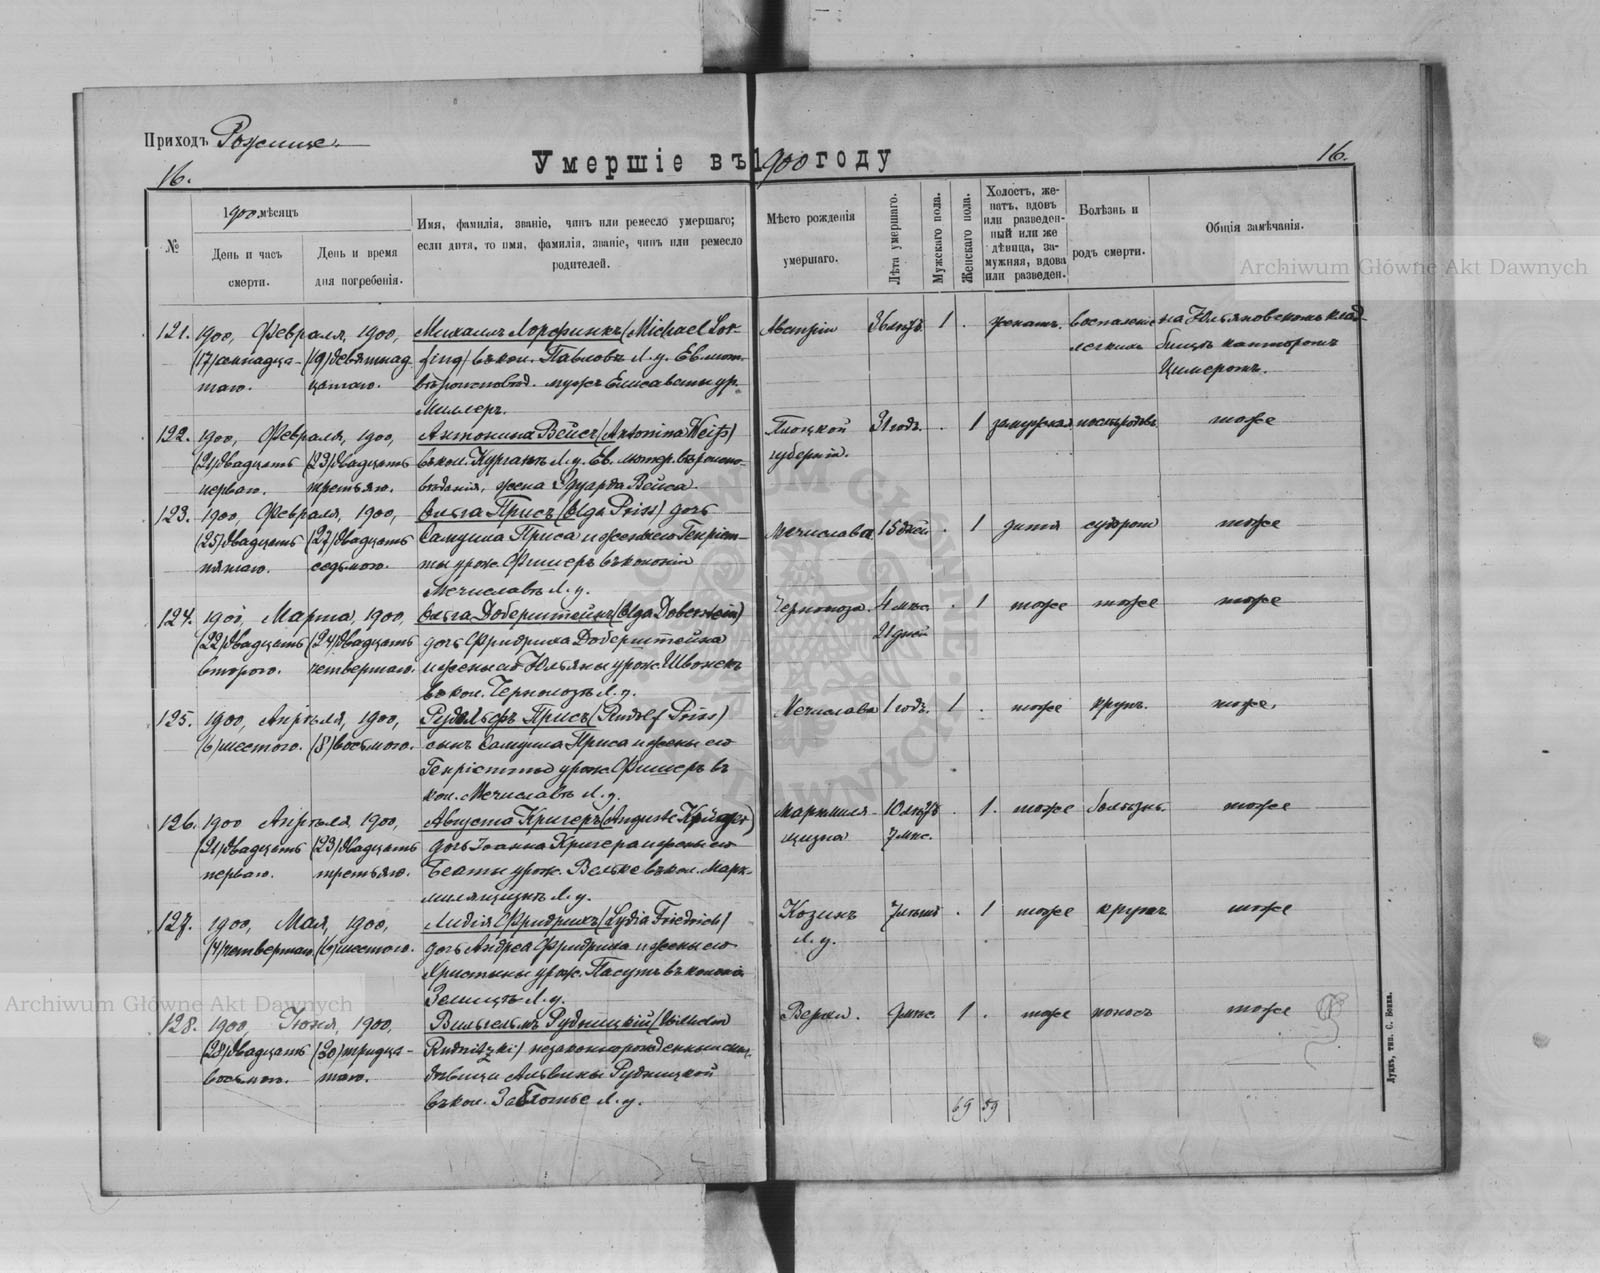 Приходъ Рожище
Умершіе въ 1900 году
16.
16.
№
1900 мѣсяцъ
День и часъ смерти.
День и время дня погребенія.
Имя, фамилія, званіе, чинъ или ремесло умершаго;
если дитя, то имя, фамилія, званіе, чинъ или ремесло
родителей.
Мѣсто рожденія
умершаго.
Лѣта умершаго.
Мужскаго пола.
Женскаго пола.
Холостъ, же-
натъ, вдовъ
или разведен-
ный или же
дѣвица, за-
мужняя, вдова
или разведен.
Болѣзнь и
родъ смерти.
Общія замѣчанія.
121. 1900, Февраля, 1900, Михаилъ Лорфинкъ (Michael Lor- Австріи 36 лѣтъ 1 . женатъ. воспаленіе на Юльяновскомъ клад-
(17) семнадца- (19) девятнад- fing) въ кол. Павловъ Л. у. Ев. лют. легкихъ бищѣ канторомъ
таго. цатаго. вѣроисповѣд. мужъ Елисаветы ур. Цимеромъ.
Миллеръ.
122. 1900, Февраля, 1900, Антонина Вейсъ (Antonina Weiß) Плоцкой 31 годъ. . 1 замужная тоже
(21) двадцать (23) двадцать въ кол. Курганъ Л. у. Ев. лютер. вѣроиспо- губерніи.
перваго. третьяго. вѣданія, жена Эдуарда Вейса.
123. 1900, Февраля, 1900, Ольга Присъ (Olga Priss) дочь Мечиславъ 15 дней . 1 дитя судорот тоже
(25) двадцать (27) двадцать Самуила Приса и жены его Генріет-
пятаго. седьмого. ты урож. Фишеръ въ колоніи
Мечиславъ Л. у.
124. 1900, Марта, 1900, Ольга Доберштейнъ (Olga Doberstein) 4 мѣс. . 1 тоже тоже тоже
(22) двадцать (24) двадцать дочь Фридриха Доберштейна 21 дней
второго. четвертаго. и жены его Юльяны урож.
въ кол. Л. у.
125. 1900, Апрѣля, 1900, Рудольфъ Присъ (Rudolf Priss) Мечиславъ 1 годъ. 1 . тоже крупъ. тоже.
(6) шестого. (8) восьмого. сынъ Самуила Приса и жены его
Генріетты урож. Фишеръ въ
кол. Мечиславъ Л. у.
126. 1900 Апрѣля, 1900, Августа Кригеръ (Auguste Krüger) Маркиля- 10 лѣтъ . 1. тоже болѣзнь тоже
(21) двадцать (23) двадцать дочь Іоанна Кригера и жены его щизна 7 мѣс.
перваго. третьяго. Беаты урож. Вельке въ кол. Марк-
Л. у.
127. 1900, Мая, 1900, Лидія Фридрихъ (Lydia Friedrich) Козинъ . 1 тоже крупъ тоже
(4) четвертаго (6) шестого. дочь Андрея Фридриха и жены его Л. у.
Христины урож. въ колоніи
Л. у.
128. 1900, Іюня, 1900, Вильгельмъ Рудницкій (Wilhelm 9 мѣс. 1 . тоже поносъ тоже
(28) двадцать (30) тридца- Rudnitzki) незаконнорожденный сынъ
восьмого. таго. дѣвицы Альвины Рудницкой
въ кол. Заболотье Л. у.
69 59
Луцкъ, тип. С. Бонка.
Archiwum Główne Akt Dawnych
Archiwum Główne Akt Dawnych